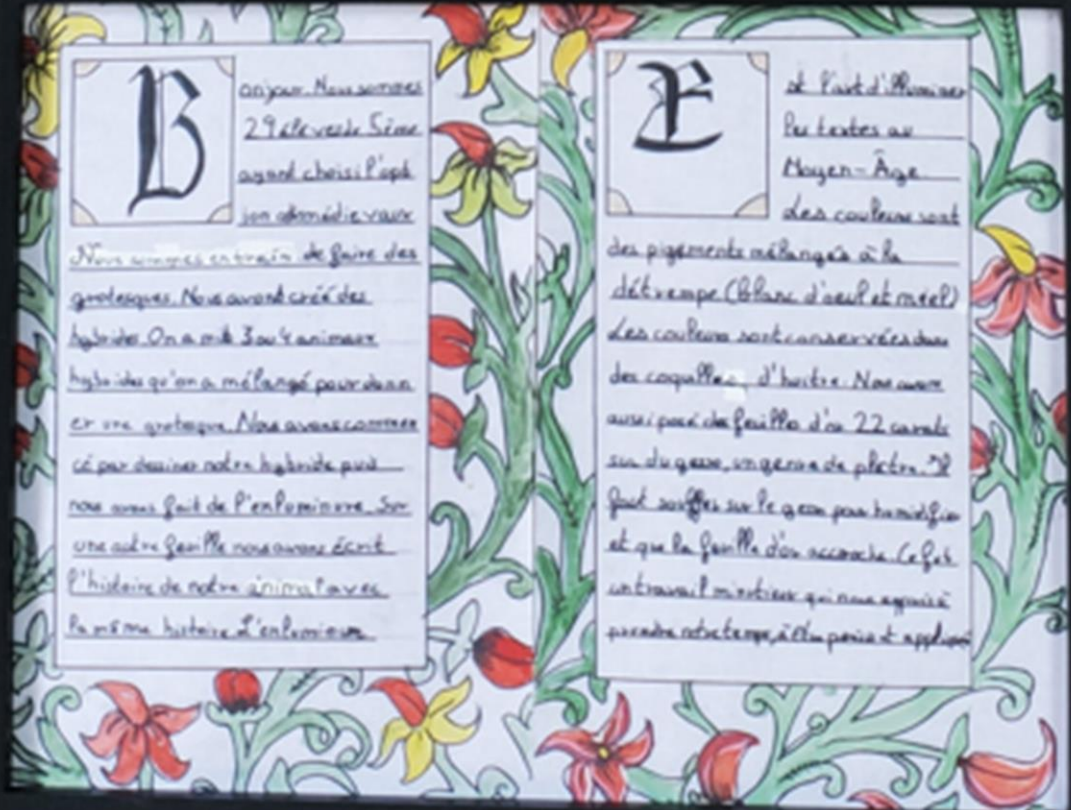 Bonjour. Nous sommes
29 élèves de 5ème
ayant choisi l'opt
ion
Nous sommes entrain de faire des
grotesques. Nous avont créé des
hybrides. On a mit 3 ou 4 animaux
hybrides qu'on a mélangé pour donn
er une grotesque. Nous avons commen
cé par dessiner notre hybride puis
nous avons fait de l'enluminure. Sur
une autre feuille nous avons écrit
l'histoire de notre animal avec
la même histoire. L'enluminure
Est l'art d'illuminer
les textes au
Moyen-Âge
Les couleurs sont
des pigements mélangés à la
détrempe (blanc d'œuf et miel)
Les couleurs sont conservées dans
des coquilles d'huitre. Nous avons
aussi posé des feuilles d'or 22 carats
sur du gesso, un genre de plâtre. Il
faut souffler sur le gesso pour humidifier
et que la feuille d'or accroche. Ce fut
un travail minutieux qui nous appris à
prendre notre temps, à être précis et appliqué